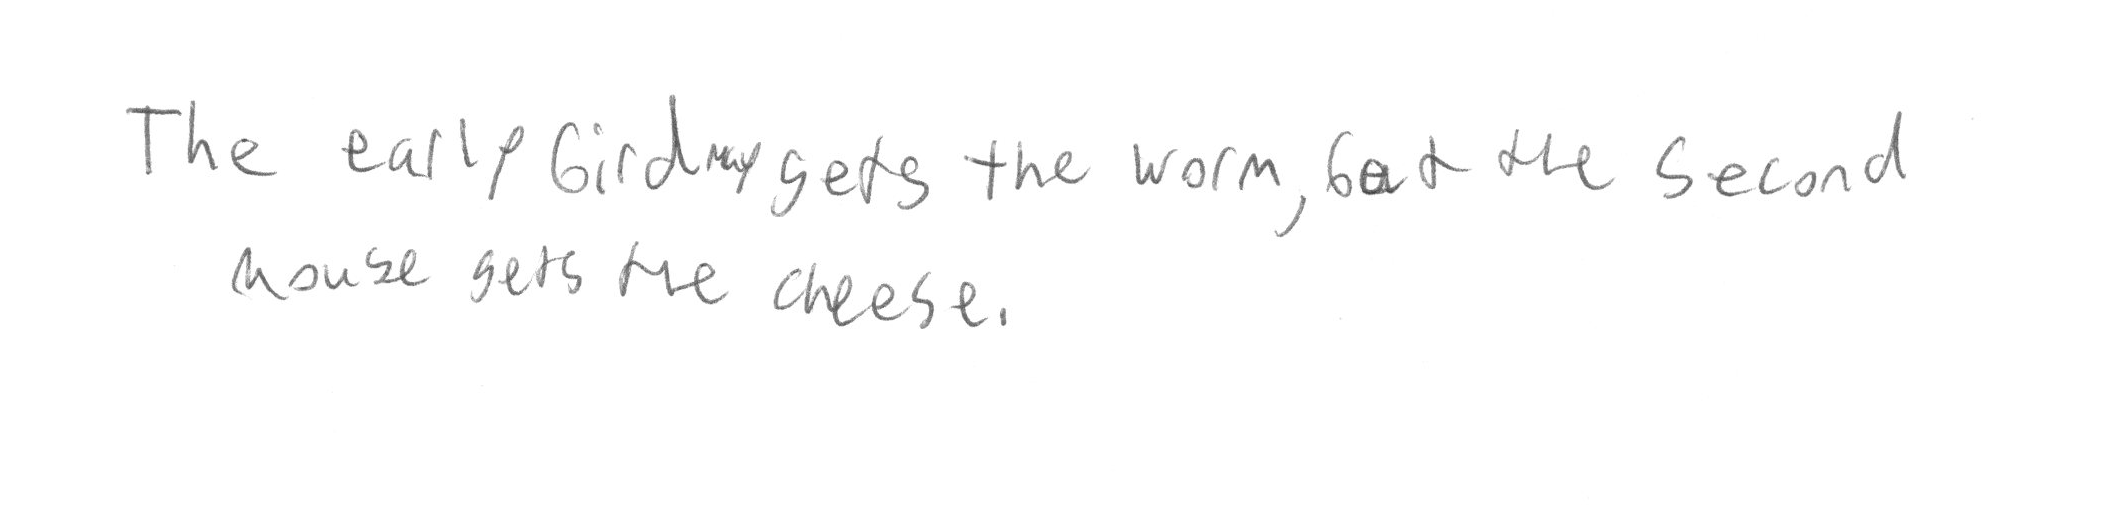 The early bird may gets the worm, but the second
mouse gets the cheese.